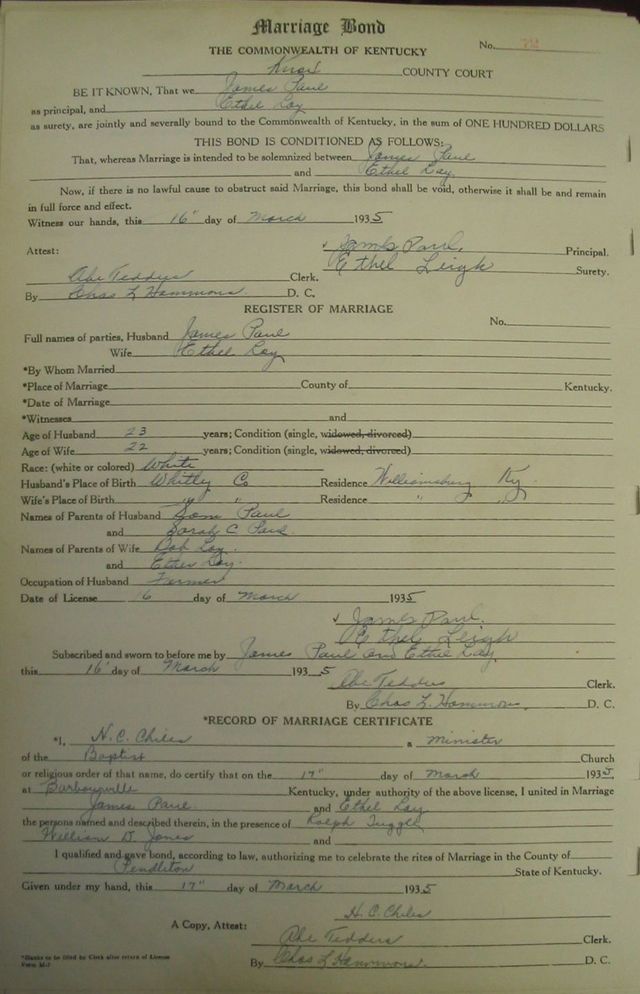 Marriage Bond
THE COMMONWEALTH OF KENTUCKY No. 72
Knox COUNTY COURT
BE IT KNOWN, That we James Paul
as principal, and Ethel Loy
as surety, are jointly and severally bound to the Commonwealth of Kentucky, in the sum of ONE HUNDRED DOLLARS
THIS BOND IS CONDITIONED AS FOLLOWS:
That, whereas Marriage is intended to be solemnized between James Paul
and Ethel Loy
Now, if there is no lawful cause to obstruct said Marriage, this bond shall be void, otherwise it shall be and remain
in full force and effect.
Witness our hands, this 16" day of March 1935
Attest: James Paul, Principal.
Ethel Leigh Surety.
Abe Tedders Clerk.
By Chas L Hammons D. C.
REGISTER OF MARRIAGE
No.
Full names of parties, Husband James Paul
Wife Ethel Loy
*By Whom Married
*Place of Marriage County of Kentucky.
*Date of Marriage
*Witnesses and
Age of Husband 23 years; Condition (single, widowed, divorced)
Age of Wife 22 years; Condition (single, widowed, divorced)
Race: (white or colored) White
Husband's Place of Birth Whitly C Residence Williamsburg Ky.
Wife's Place of Birth " " Residence " "
Names of Parents of Husband Paul
and Sarah C Paul
Names of Parents of Wife Bob Loy.
and Loy.
Occupation of Husband Farmer
Date of License 16 day of March 1935
James Paul.
Ethel Leigh
Subscribed and sworn to before me by James Paul and Ethel Loy
this 16' day of March 1935
Abe Tedders Clerk.
By Chas L. Hammons, D. C.
*RECORD OF MARRIAGE CERTIFICATE
*I, H. C. Chiles a minister
of the Baptist Church
or religious order of that name, do certify that on the 17" day of March 1935
at Barbourville Kentucky, under authority of the above license, I united in Marriage
James Paul. and Ethel Loy
the persons named and described therein, in the presence of Ralph Tuggle
William D. Jones and
I qualified and gave bond, according to law, authorizing me to celebrate the rites of Marriage in the County of
Pendleton State of Kentucky.
Given under my hand, this 17" day of March 1935
H. C. Chiles
A Copy, Attest: Abe Tedders Clerk.
By Chas L Hammons. D. C.
*Blanks to be filled by Clerk after return of License
Form M-7